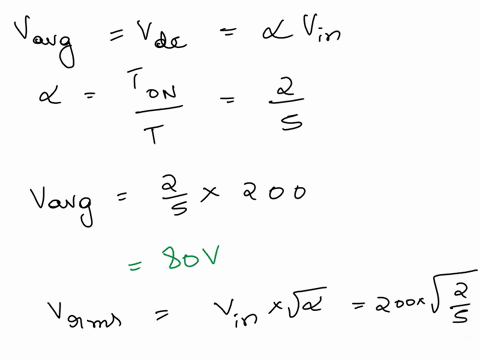 V_avg = V_dc = α V_in
α = T_ON / T = 2/5
V_avg = 2/5 × 200
= 80V
V_rms = V_in × √α = 200 × √(2/5)